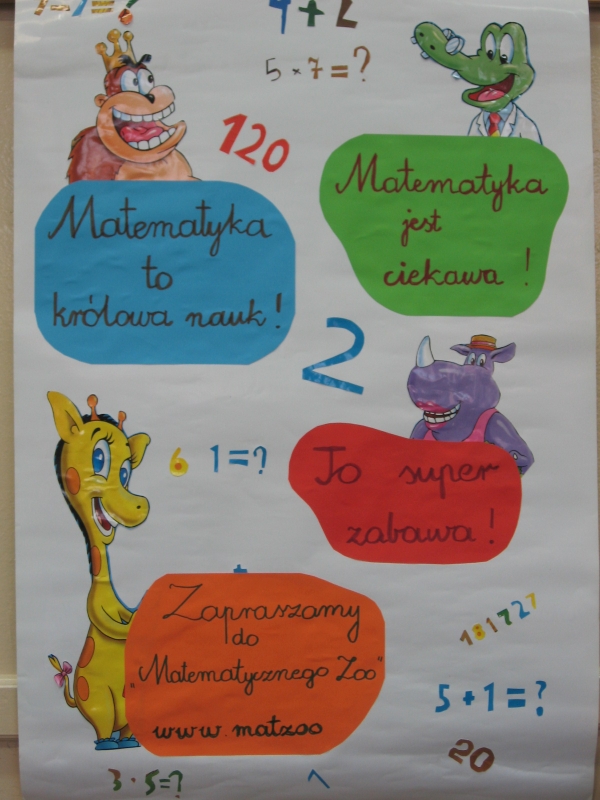 4+2
5 × 7 = ?
120
Matematyka
to
królowa nauk!
Matematyka
jest
ciekawa!
2
6 1 = ?
To super
zabawa!
Zapraszamy
do
„Matematycznego Zoo"
www.matzoo
181727
5 + 1 = ?
20
3 · 5 = ?